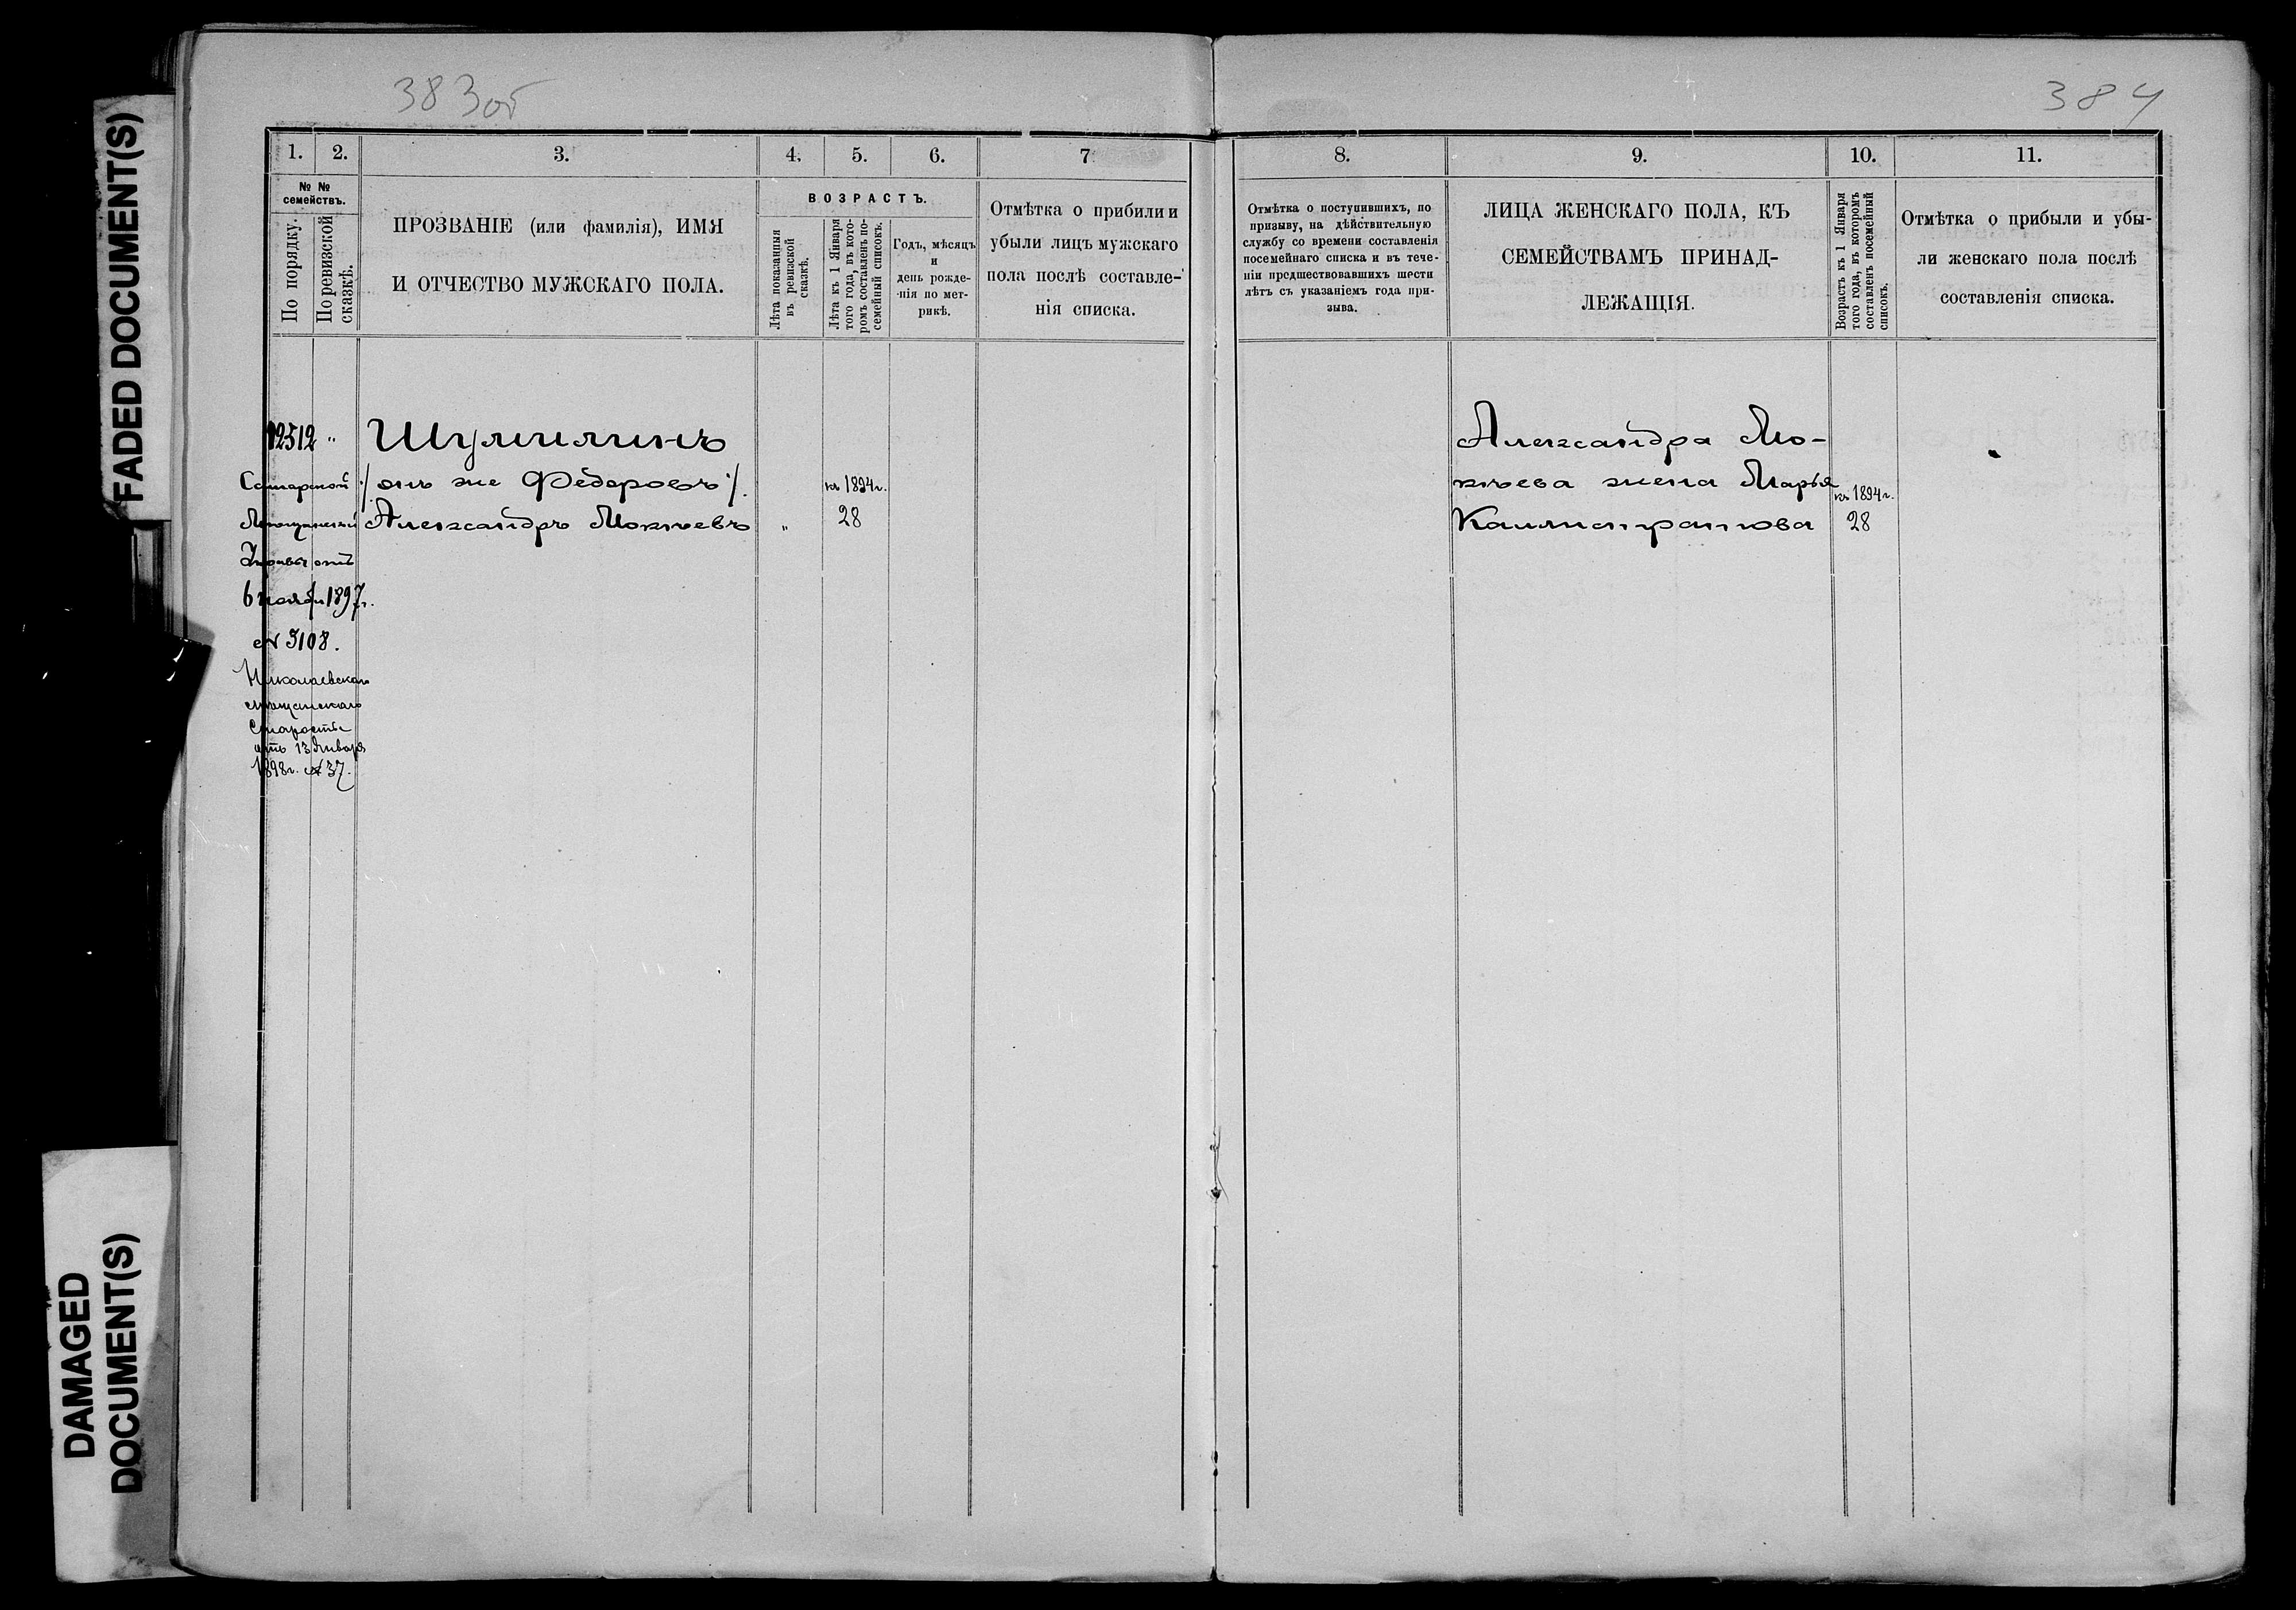 FADED DOCUMENT(S)
DAMAGED
DOCUMENT(S)
383об
1.
2.
3.
4.
5.
6.
7
№ №
семействъ.
По порядку.
По ревизской
сказкѣ.
ПРОЗВАНІЕ (или фамилія), ИМЯ
И ОТЧЕСТВО МУЖСКАГО ПОЛА.
ВОЗРАСТЪ.
Лѣта показанныя
въ ревизской
сказкѣ.
Лѣта къ 1 Января
того года, въ кото-
ромъ составленъ по-
семейный списокъ.
Годъ, мѣсяцъ
и
день рожде-
нія по мет-
рикѣ.
Отмѣтка о прибыли и
убыли лицъ мужскаго
пола послѣ составле-
нія списка.
12512 "
Шумилинъ
Самарской
/онъ же Федоровъ/.
къ 1894 г.
Мѣщанской
Александръ Мокѣевъ
"
28
Управы отъ
6 ноября 1897 г.
№ 3108.
Николаевскаго
мѣщанскаго
Старосты
отъ 13 Января
1898 г. № 37.
384
8.
9.
10.
11.
Отмѣтка о поступившихъ, по
призыву, на дѣйствительную
службу со времени составленія
посемейнаго списка и въ тече-
ніи предшествовавшихъ шести
лѣтъ съ указаніемъ года при-
зыва.
ЛИЦА ЖЕНСКАГО ПОЛА, КЪ
СЕМЕЙСТВАМЪ ПРИНАД-
ЛЕЖАЩІЯ.
Возрастъ къ 1 Января
того года, въ которомъ
составленъ посемейный
списокъ.
Отмѣтка о прибыли и убы-
ли женскаго пола послѣ
составленія списка.
Александра Мо-
кѣева жена Марья
къ 1894 г.
28